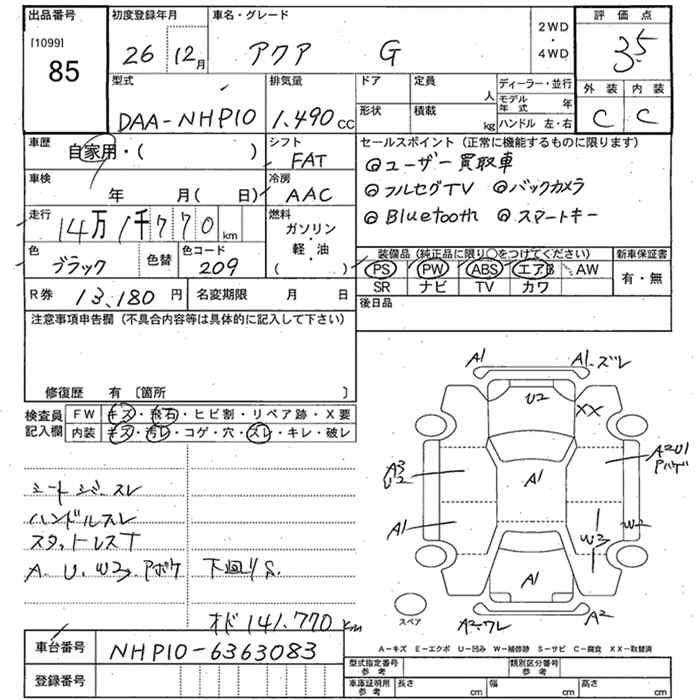 出品番号
[1099]
85
初度登録年月
26 12月
車名・グレード
アクア G
2WD
・
4WD
評価点
3.5
外装 内装
C C
型式
DAA-NHP10
排気量
1.490 cc
ドア 定員 人
形状 積載 kg
ディーラー・並行
モデル年式 年
ハンドル 左・右
車歴
自家用・( )
シフト
FAT
セールスポイント (正常に機能するものに限ります)
◎ユーザー買取車
◎フルセグTV ◎バックカメラ
◎Bluetooth ◎スマートキー
車検
年 月( 日)
冷房
AAC
走行
14万1千770 km
燃料
ガソリン
・
軽・油
( )
色
ブラック
色替
色コード
209
装備品 (純正品に限り〇をつけてください)
新車保証書
PS PW ABS エアB AW
有・無
SR ナビ TV カワ
R券 13,180 円
名変期限 月 日
後日品
注意事項申告欄 (不具合内容等は具体的に記入して下さい)
修復歴 有 〔箇所 〕
検査員記入欄
FW キズ・飛石・ヒビ割・リペア跡・X要
内装 キズ・汚レ・コゲ・穴・スレ・キレ・破レ
シートジャースレ
ハンドルスレ
スタットレスT
A.U.W3.Aボケ 下回りS.
オド 141.770km
A1
A1.ズレ
U2
XX
A2U1
Aハゲ
A3
U2
A1
A1
W3
W2
A1
A2.ワレ
A2
スペア
A-キズ E-エクボ U-凹み W-補修跡 S-サビ C-腐食 XX-取替済
車台番号
NHP10-6363083
登録番号
型式指定番号
参考
類別区分番号
参考
車庫証明用
参考
長さ cm
幅 cm
高さ cm